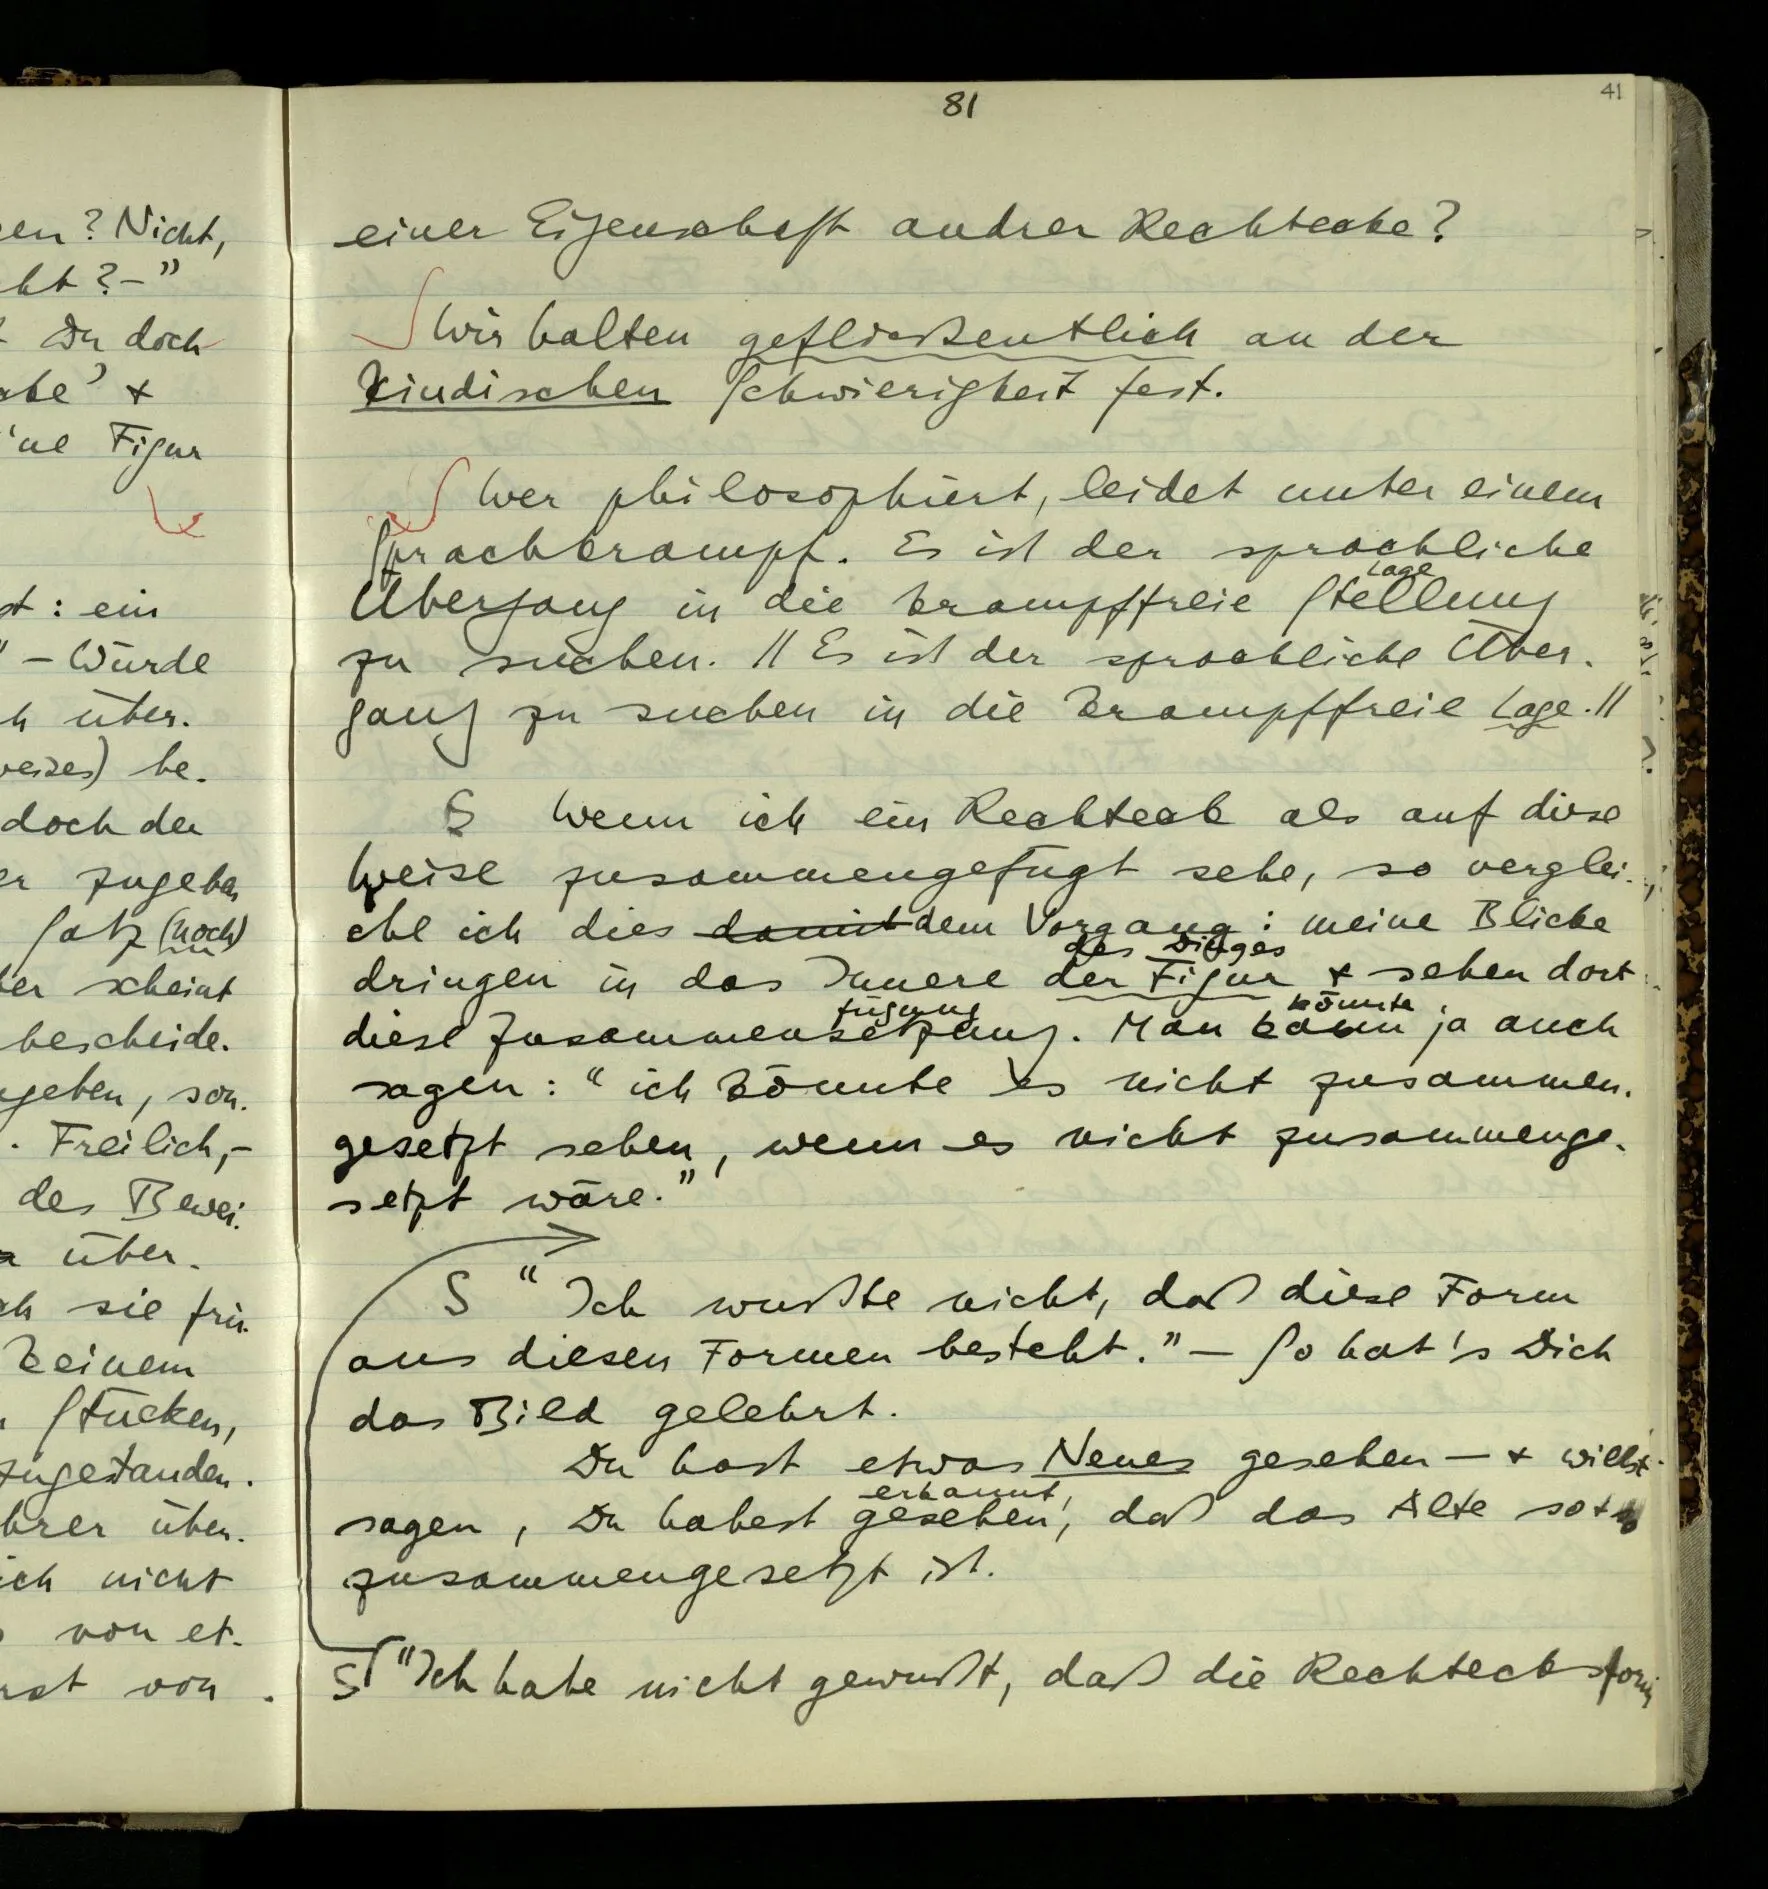 81
41
en? Nicht,
ht? – ”
Du doch
abe’ +
'ne Figur
st: ein
” – Würde
h über.
weises) be.
doch der
er zugeben
Satz (noch)
er scheint
bescheide.
geben, son.
. Freilich, –
des Bewei.
über.
ch sie frü.
keinem
Stücken,
zugestanden.
hrer über.
ich nicht
von et.
rst von
einer Eigenschaft andrer Rechtecke?
∫ Wir halten gefließentlich an der
kindischen Schwierigkeit fest.
∫ Wer philosophiert, leidet unter einem
Sprachkrampf. Es ist der sprachliche
Lage
Übergang in die krampffreie Stellung
zu suchen. || Es ist der sprachliche Über.
gang zu suchen in die krampffreie Lage. ||
S Wenn ich ein Rechteck als auf diese
Weise zusammengefügt sehe, so verglei.
che ich dies damit dem Vorgang: meine Blicke
des Dinges
dringen in das Innere der Figur + sehen dort
fügung könnte
diese Zusammensetzung. Man kann ja auch
sagen: “ich könnte es nicht zusammen.
gesetzt sehen, wenn es nicht zusammenge.
setzt wäre.”
S “Ich wußte nicht, daß diese Form
aus diesen Formen besteht.” – So hat's Dich
das Bild gelehrt.
Du hast etwas Neues gesehen – + willst
erkannt,
sagen, Du habest gesehen, daß das Alte so + so
zusammengesetzt ist.
S “Ich habe nicht gewußt, daß die Rechtecksform